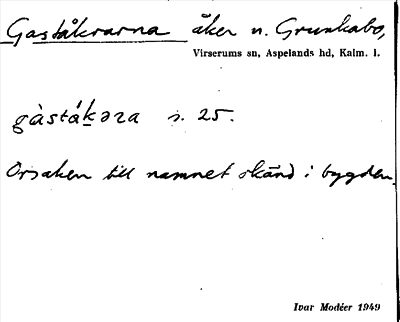 Gaståkrarna åker n. Grunkabo,
Virserums sn, Aspelands hd, Kalm. l.
gàståk̲əra s. 25.
Orsaken till namnet okänd i bygden.
Ivar Modéer 1949